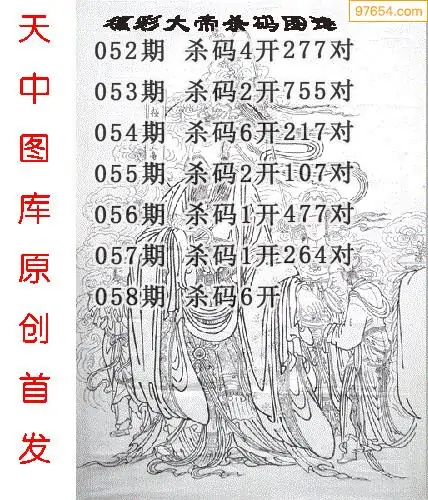 97654.com
福彩大帝杀码图迷
天中图库原创首发
052期 杀码4开277对
053期 杀码2开755对
054期 杀码6开217对
055期 杀码2开107对
056期 杀码1开477对
057期 杀码1开264对
058期 杀码6开